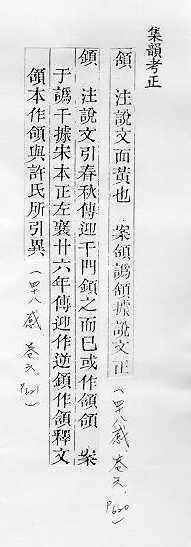 集韻考正
頷　注說文面黃也　案頷譌頟據說文正（四十八感．卷六．P620）
頷　注說文引春秋傳迎于門頷之而已或作顉頜　案
于譌千據宋本正左襄廿六年傳迎作逆顉作頷釋文
頷本作顉與許氏所引異（四十八感．卷六．P621）